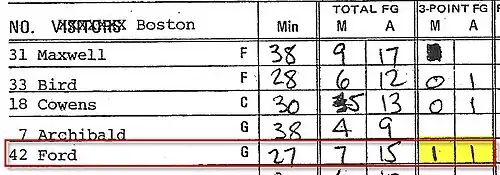 TOTAL FG 3-POINT FG
NO. VISITORS Boston Min M A M A
31 Maxwell F 38 9 17
33 Bird F 28 6 12 0 1
18 Cowens C 30 5 13 0 1
7 Archibald G 38 4 9
42 Ford G 27 7 15 1 1